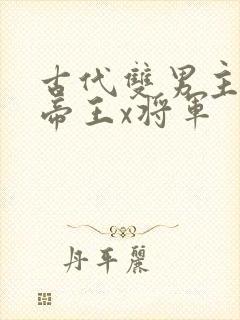 古代雙男主
帝王x將軍
丹平麗